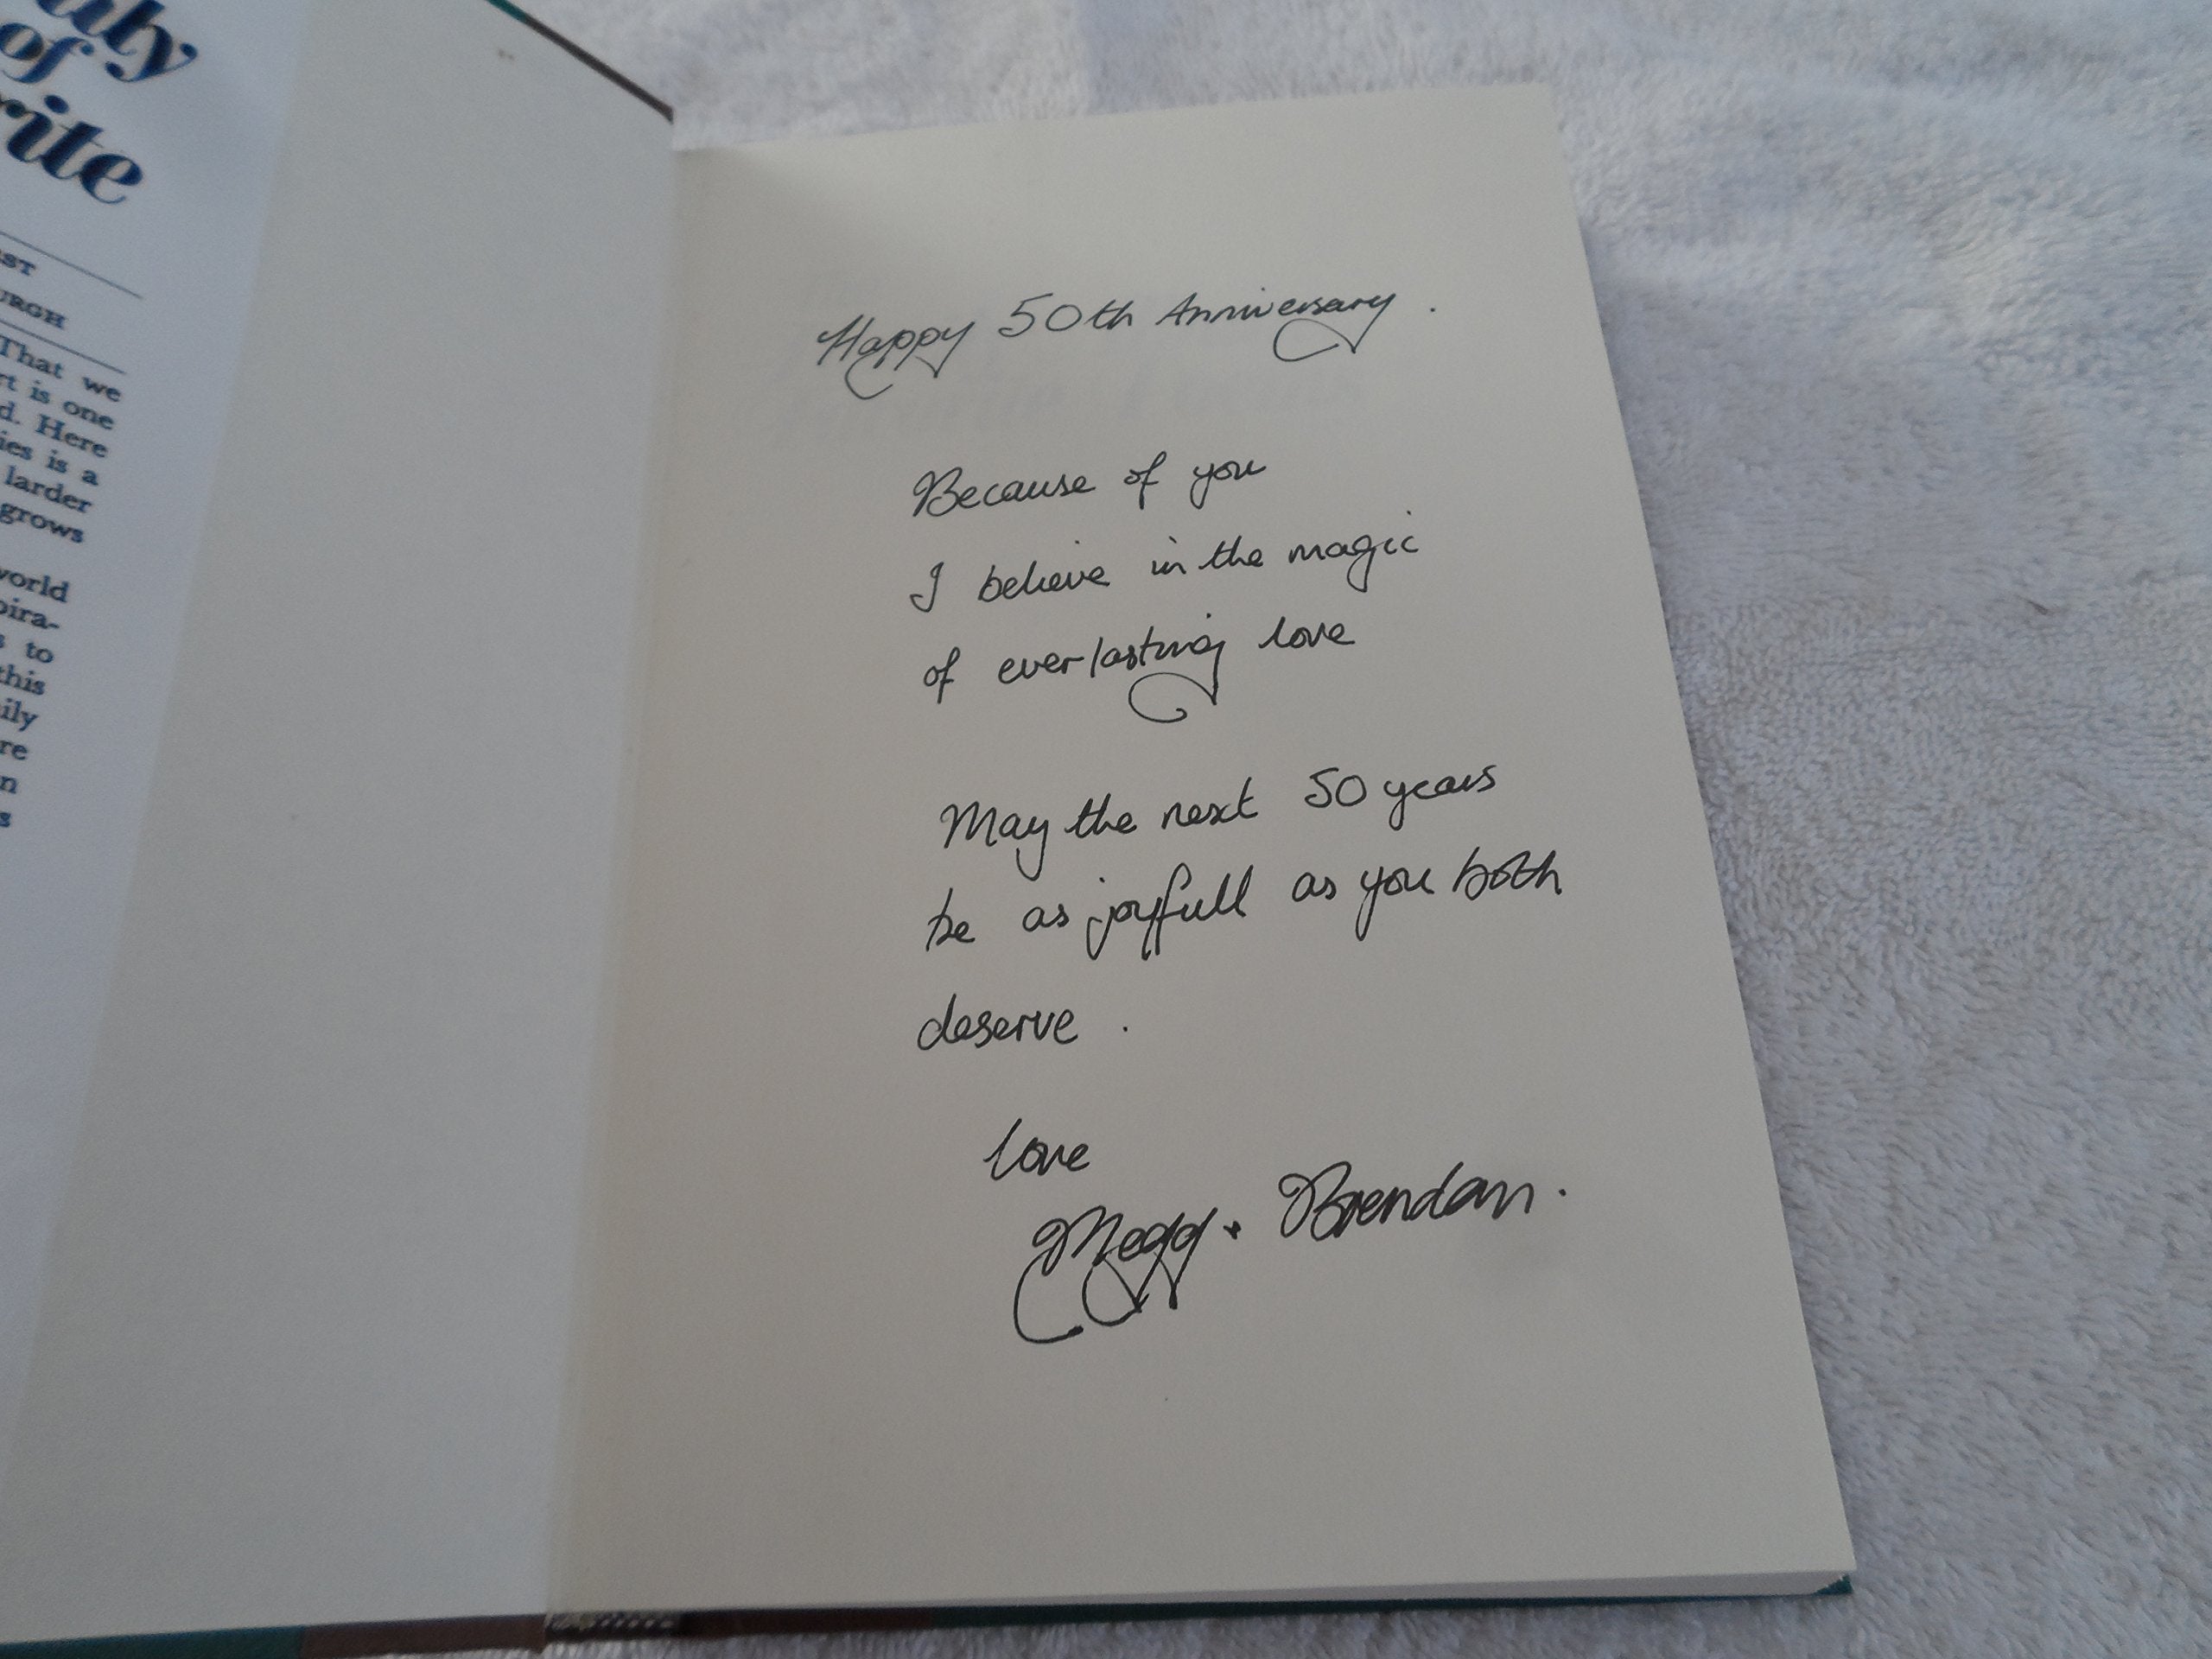 of
ST
URGH
That we
rt is one
d. Here
ies is a
larder
grows
world
pira-
s to
this
ily
re
n
s
Happy 50th Anniversary.
Because of you
I believe in the magic
of everlasting love
May the next 50 years
be as joyfull as you both
deserve.
love
Megg + Brendan.